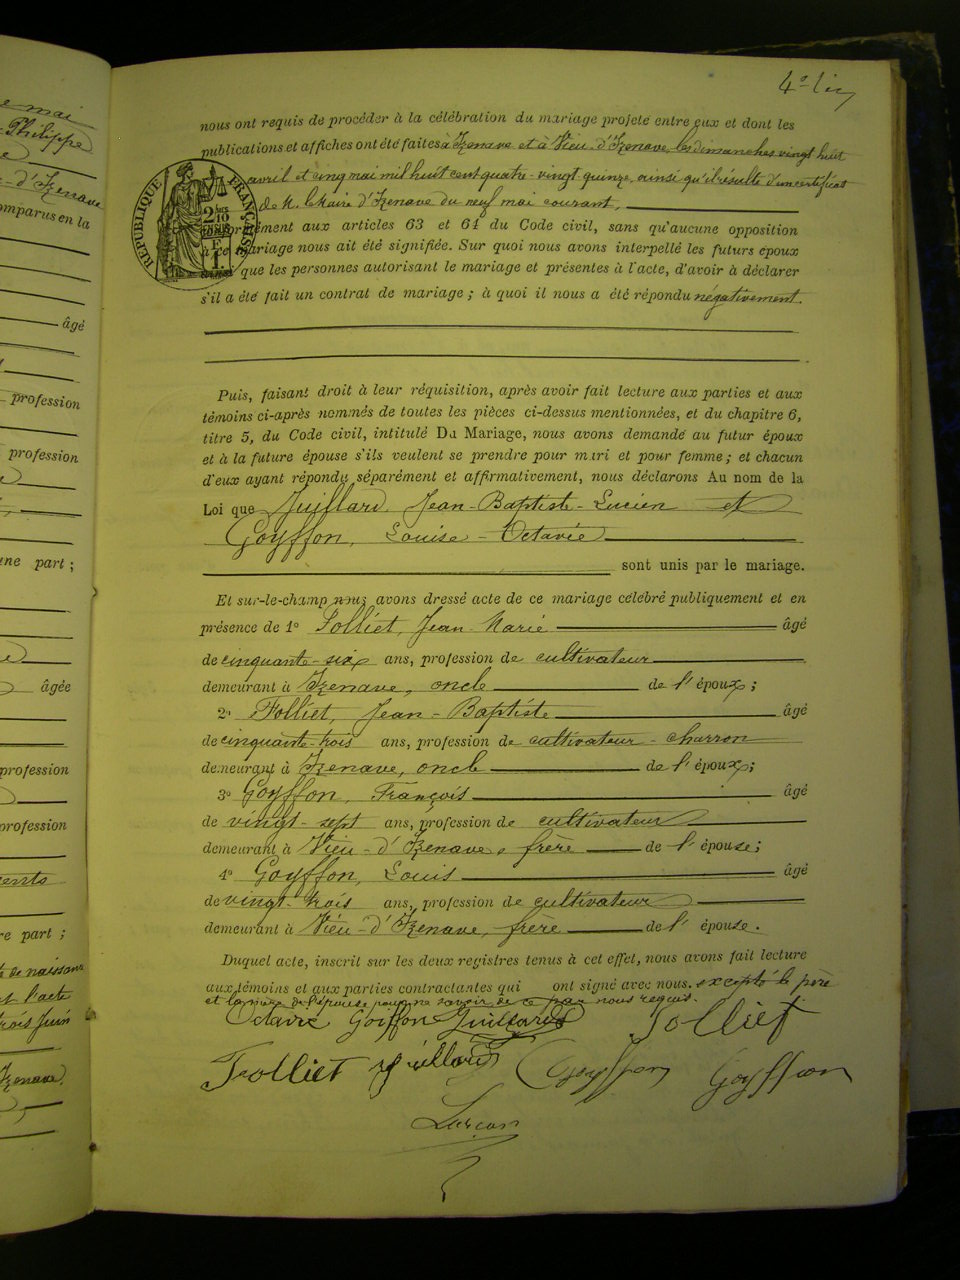 e mai
Philippe
e
-d'Izenave
omparus en la
âgé
profession
profession
ne part ;
âgée
profession
profession
ents
re part ;
te de naissan
t l'acte
trois juin
Izenave
4e
nous ont requis de procéder à la célébration du mariage projeté entre eux et dont les
publications et affiches ont été faites à Izenave et à Vieu-d'Izenave les dimanches vingt huit
avril et cinq mai mil huit cent quatre-vingt quinze, ainsi qu'il résulte d'un certificat
de M. le Maire d'Izenave du neuf mai courant,
RÉPUBLIQUE FRANÇAISE
2/10
conformément aux articles 63 et 64 du Code civil, sans qu'aucune opposition
à ce mariage nous ait été signifiée. Sur quoi nous avons interpellé les futurs époux
que les personnes autorisant le mariage et présentes à l'acte, d'avoir à déclarer
s'il a été fait un contrat de mariage ; à quoi il nous a été répondu négativement.
Puis, faisant droit à leur réquisition, après avoir fait lecture aux parties et aux
témoins ci-après nommés de toutes les pièces ci-dessus mentionnées, et du chapitre 6,
titre 5, du Code civil, intitulé Du Mariage, nous avons demandé au futur époux
et à la future épouse s'ils veulent se prendre pour mari et pour femme ; et chacun
d'eux ayant répondu séparément et affirmativement, nous déclarons Au nom de la
Loi que Juillard, Jean-Baptiste-Lucien et
Goyffon, Louise-Octavie
sont unis par le mariage.
Et sur-le-champ nous avons dressé acte de ce mariage célébré publiquement et en
présence de 1° Folliet, Jean-Marie âgé
de cinquante-six ans, profession de cultivateur
demeurant à Izenave, oncle de l'époux ;
2° Folliet, Jean-Baptiste âgé
de cinquante-trois ans, profession de cultivateur-charron
demeurant à Izenave, oncle de l'époux ;
3° Goyffon, François âgé
de vingt-sept ans, profession de cultivateur
demeurant à Vieu-d'Izenave, frère de l'épouse ;
4° Goyffon, Louis âgé
de vingt-trois ans, profession de cultivateur
demeurant à Vieu-d'Izenave, frère de l'épouse.
Duquel acte, inscrit sur les deux registres tenus à cet effet, nous avons fait lecture
aux témoins et aux parties contractantes qui ont signé avec nous, excepté le père
et la mère de l'épouse pour ne savoir de ce par nous requis.
Octavie Goiffon Juillard Folliet
Folliet Juillard Goyffon Goyffon